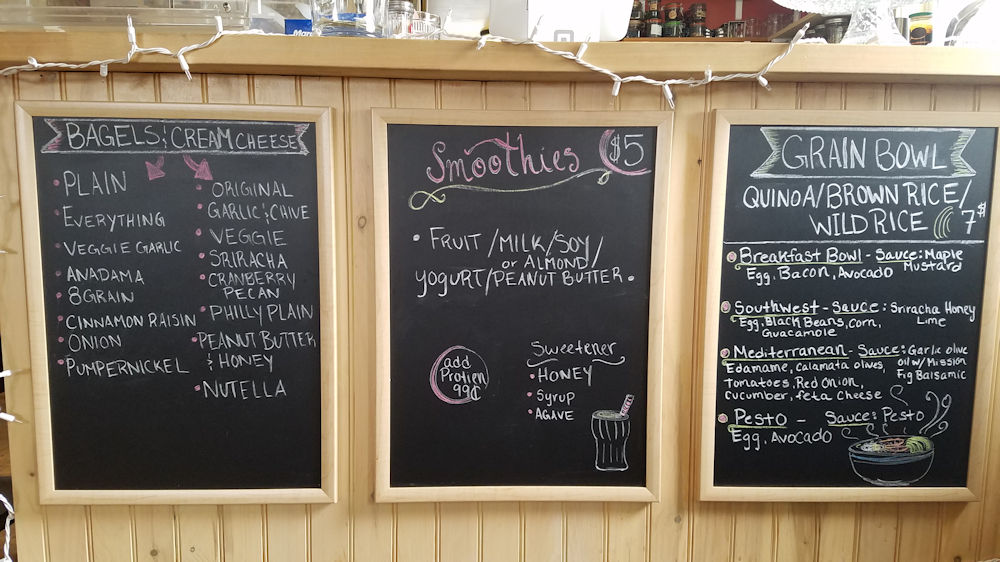 BAGELS & CREAM CHEESE
PLAIN
EVERYTHING
VEGGIE GARLIC
ANADAMA
8 GRAIN
CINNAMON RAISIN
ONION
PUMPERNICKEL
ORIGINAL
GARLIC & CHIVE
VEGGIE
SRIRACHA
CRANBERRY
PECAN
PHILLY PLAIN
PEANUT BUTTER
& HONEY
NUTELLA
Smoothies $5
FRUIT/MILK/SOY/
or ALMOND/
YOGURT/PEANUT BUTTER
add
Protien
99¢
Sweetener
HONEY
Syrup
AGAVE
GRAIN BOWL
QUINOA/BROWN RICE/
WILD RICE 7$
Breakfast Bowl - Sauce: Maple
Mustard
Egg, Bacon, Avocado
Southwest - Sauce: Sriracha Honey
Lime
Egg, Black Beans, corn,
Guacamole
Mediterranean - Sauce: Garlic olive
oil w/ Mission
Fig Balsamic
Edamame, calamata olives,
Tomatoes, Red Onion,
cucumber, feta cheese
Pesto - Sauce: Pesto
Egg, Avocado